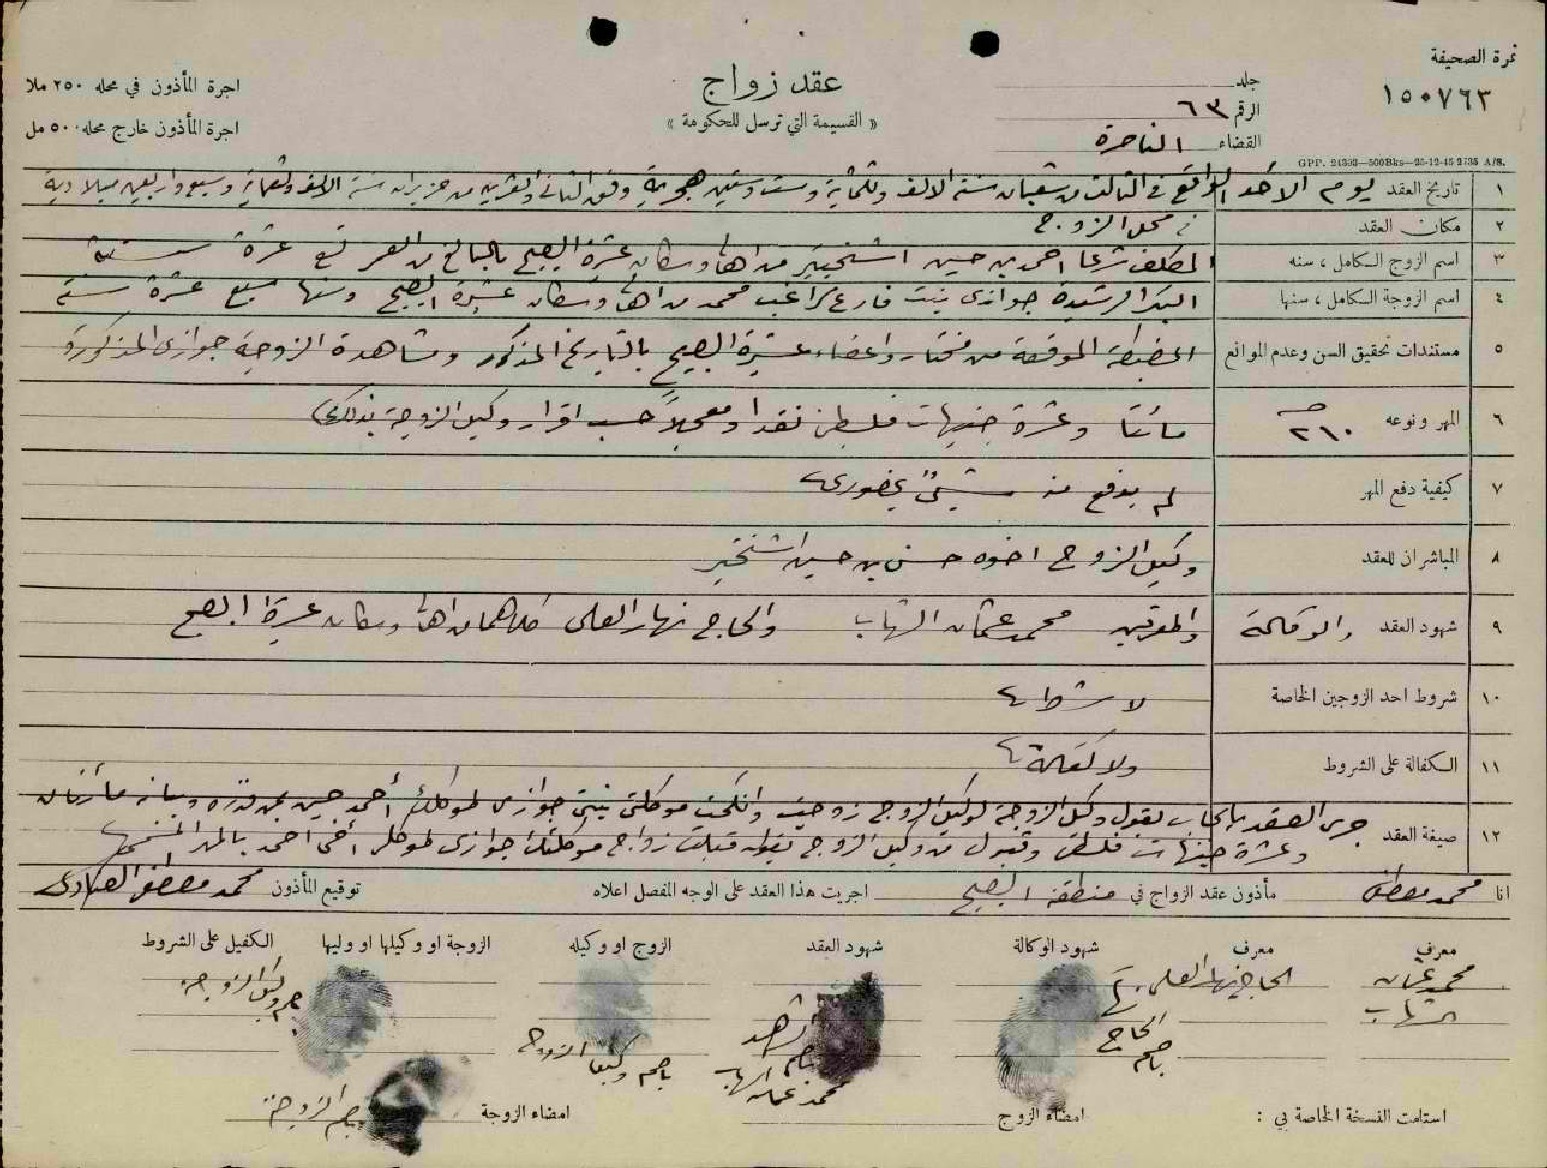 نمرة الصحيفة
١٥٠٧٦٣
جلد
الرقم ٦٣
القضاء الناصرة
عقد زواج
« القسيمة التي ترسل للحكومة »
اجرة المأذون في محله ٢٥٠ ملا
اجرة المأذون خارج محله ٥٠٠ مل
GPP. 24393—500Bks—25-12-45 2735 A/S.
١ تاريخ العقد يوم الاحد الواقع في الثالث من شعبان سنة الالف وثلثماية وست وستين هجرية وفق الثاني والعشرين من حزيران سنة الالف وتسعماية وسبع واربعين ميلادية
٢ مكان العقد في محل الزوج
٣ اسم الزوج الكامل ، سنه المكلف شرعا احمد بن حسين من اهالي وسكان عشيرة الصبيح البالغ من العمر تسع عشرة سنة
٤ اسم الزوجة الكامل ، سنها البكر الرشيدة جوازى بنت محمد من اهالي وسكان عشيرة الصبيح وسنها سبع عشرة سنة
٥ مستندات تحقيق السن وعدم الموانع المضبطة الموقعة من مختار واعضاء عشيرة الصبيح بالتاريخ المذكور ومشاهدة الزوجة جوازى المذكورة
٦ المهر ونوعه ٢١٠ مائتا وعشرة جنيهات فلسطينى نقدا ومعجلاً حسب اقرار وكيل الزوجة بذلك
٧ كيفية دفع المهر لم يدفع منه شيئ بحضورى
٨ المباشران للعقد وكيل الزوج اخوه حسن بن حسين
٩ شهود العقد والوكالة والمعرفين محمد عثمان الشهاب والحاج نهار العلى كلاهما من اهالي وسكان عشيرة الصبيح
١٠ شروط احد الزوجين الخاصة لا شرط
١١ الكفالة على الشروط ولا كفالة
١٢ صيغة العقد جرى العقد بإيجاب بقول وكيل الزوجة لوكيل الزوج زوجت وانكحت موكلتى بنتى جوازى لموكلك أحمد حسين بمهر قدره وبيانه مائتان
وعشرة جنيهات فلسطينى وقبول من وكيل الزوج بقوله قبلت زواج موكلتك جوازى لموكلى أخى احمد بالمهر
انا محمد مصطفى مأذون عقد الزواج في منطقة الصبيح اجريت هذا العقد على الوجه المفصل اعلاه توقيع المأذون محمد مصطفى
معرف معرف شهود الوكالة شهود العقد الزوج او وكيله الزوجة او وكيلها او وليها الكفيل على الشروط
محمد عثمان الشهاب
الحاج نهار العلى
بصم الحاج
بصم الشاهد محمد عثمان الشهاب
بصم وكيل الزوج
بصم وكيل الزوجة
استلمت النسخة الخاصة بي : امضاء الزوج امضاء الزوجة بصم الزوجة